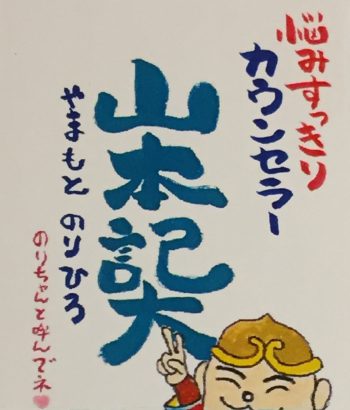 悩みすっきり
カウンセラー
山本記大
やまもと のりひろ
のりちゃんと呼んでネ